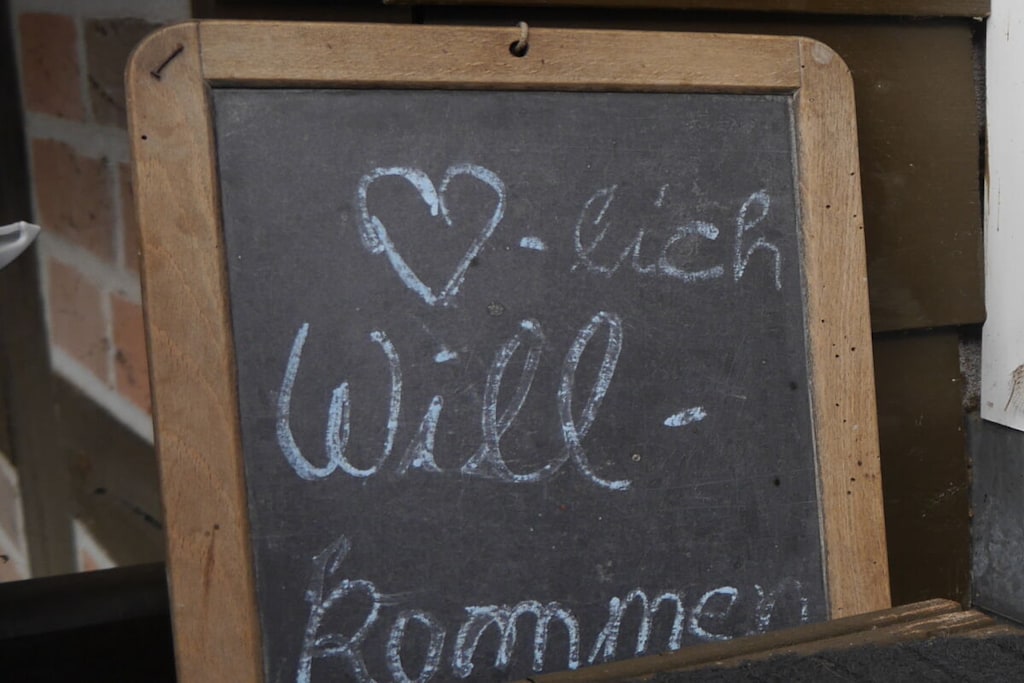 ♥-lich
Will-
kommen